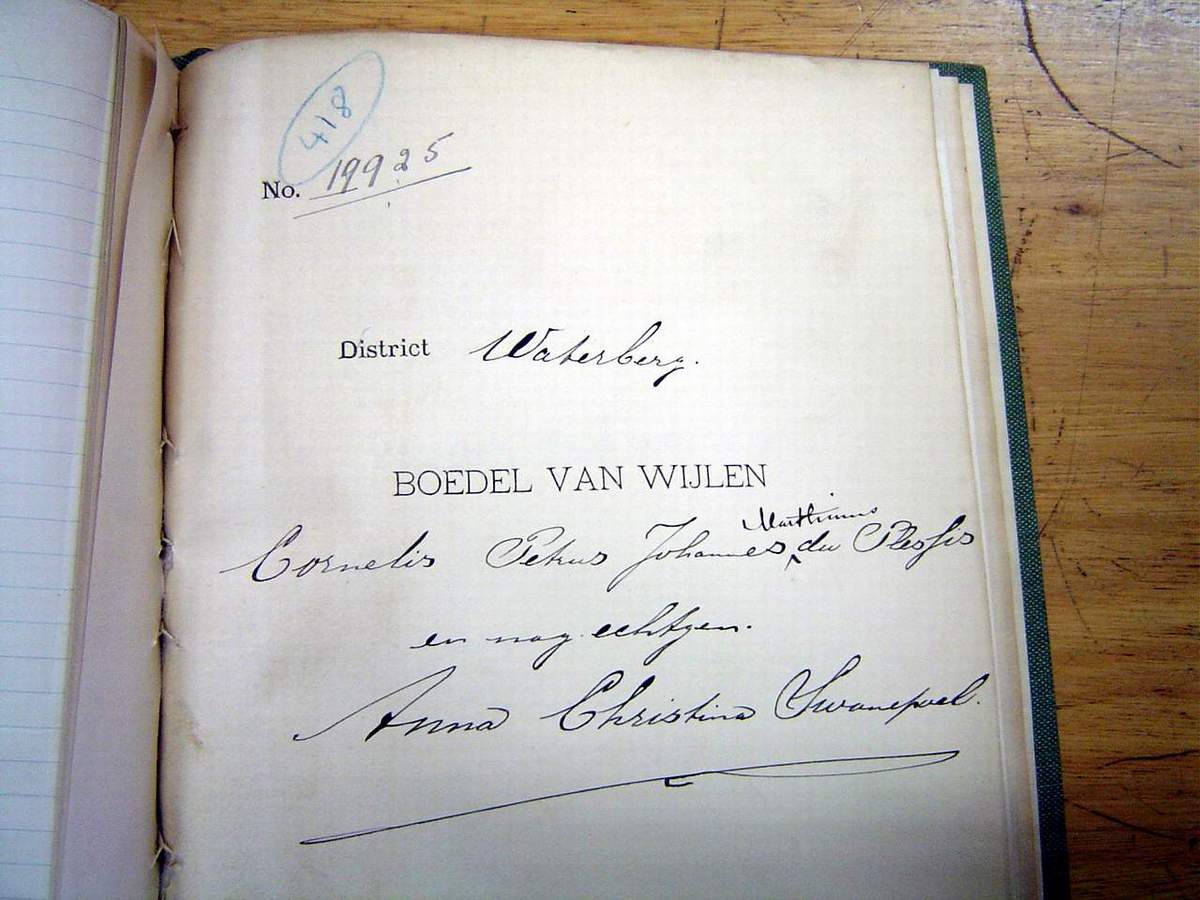 418
No. 19925
District Waterberg.
BOEDEL VAN WIJLEN
Cornelis Petrus Johannes Marthinus du Plessis
en nag. echtgen.
Anna Christina Swanepoel.